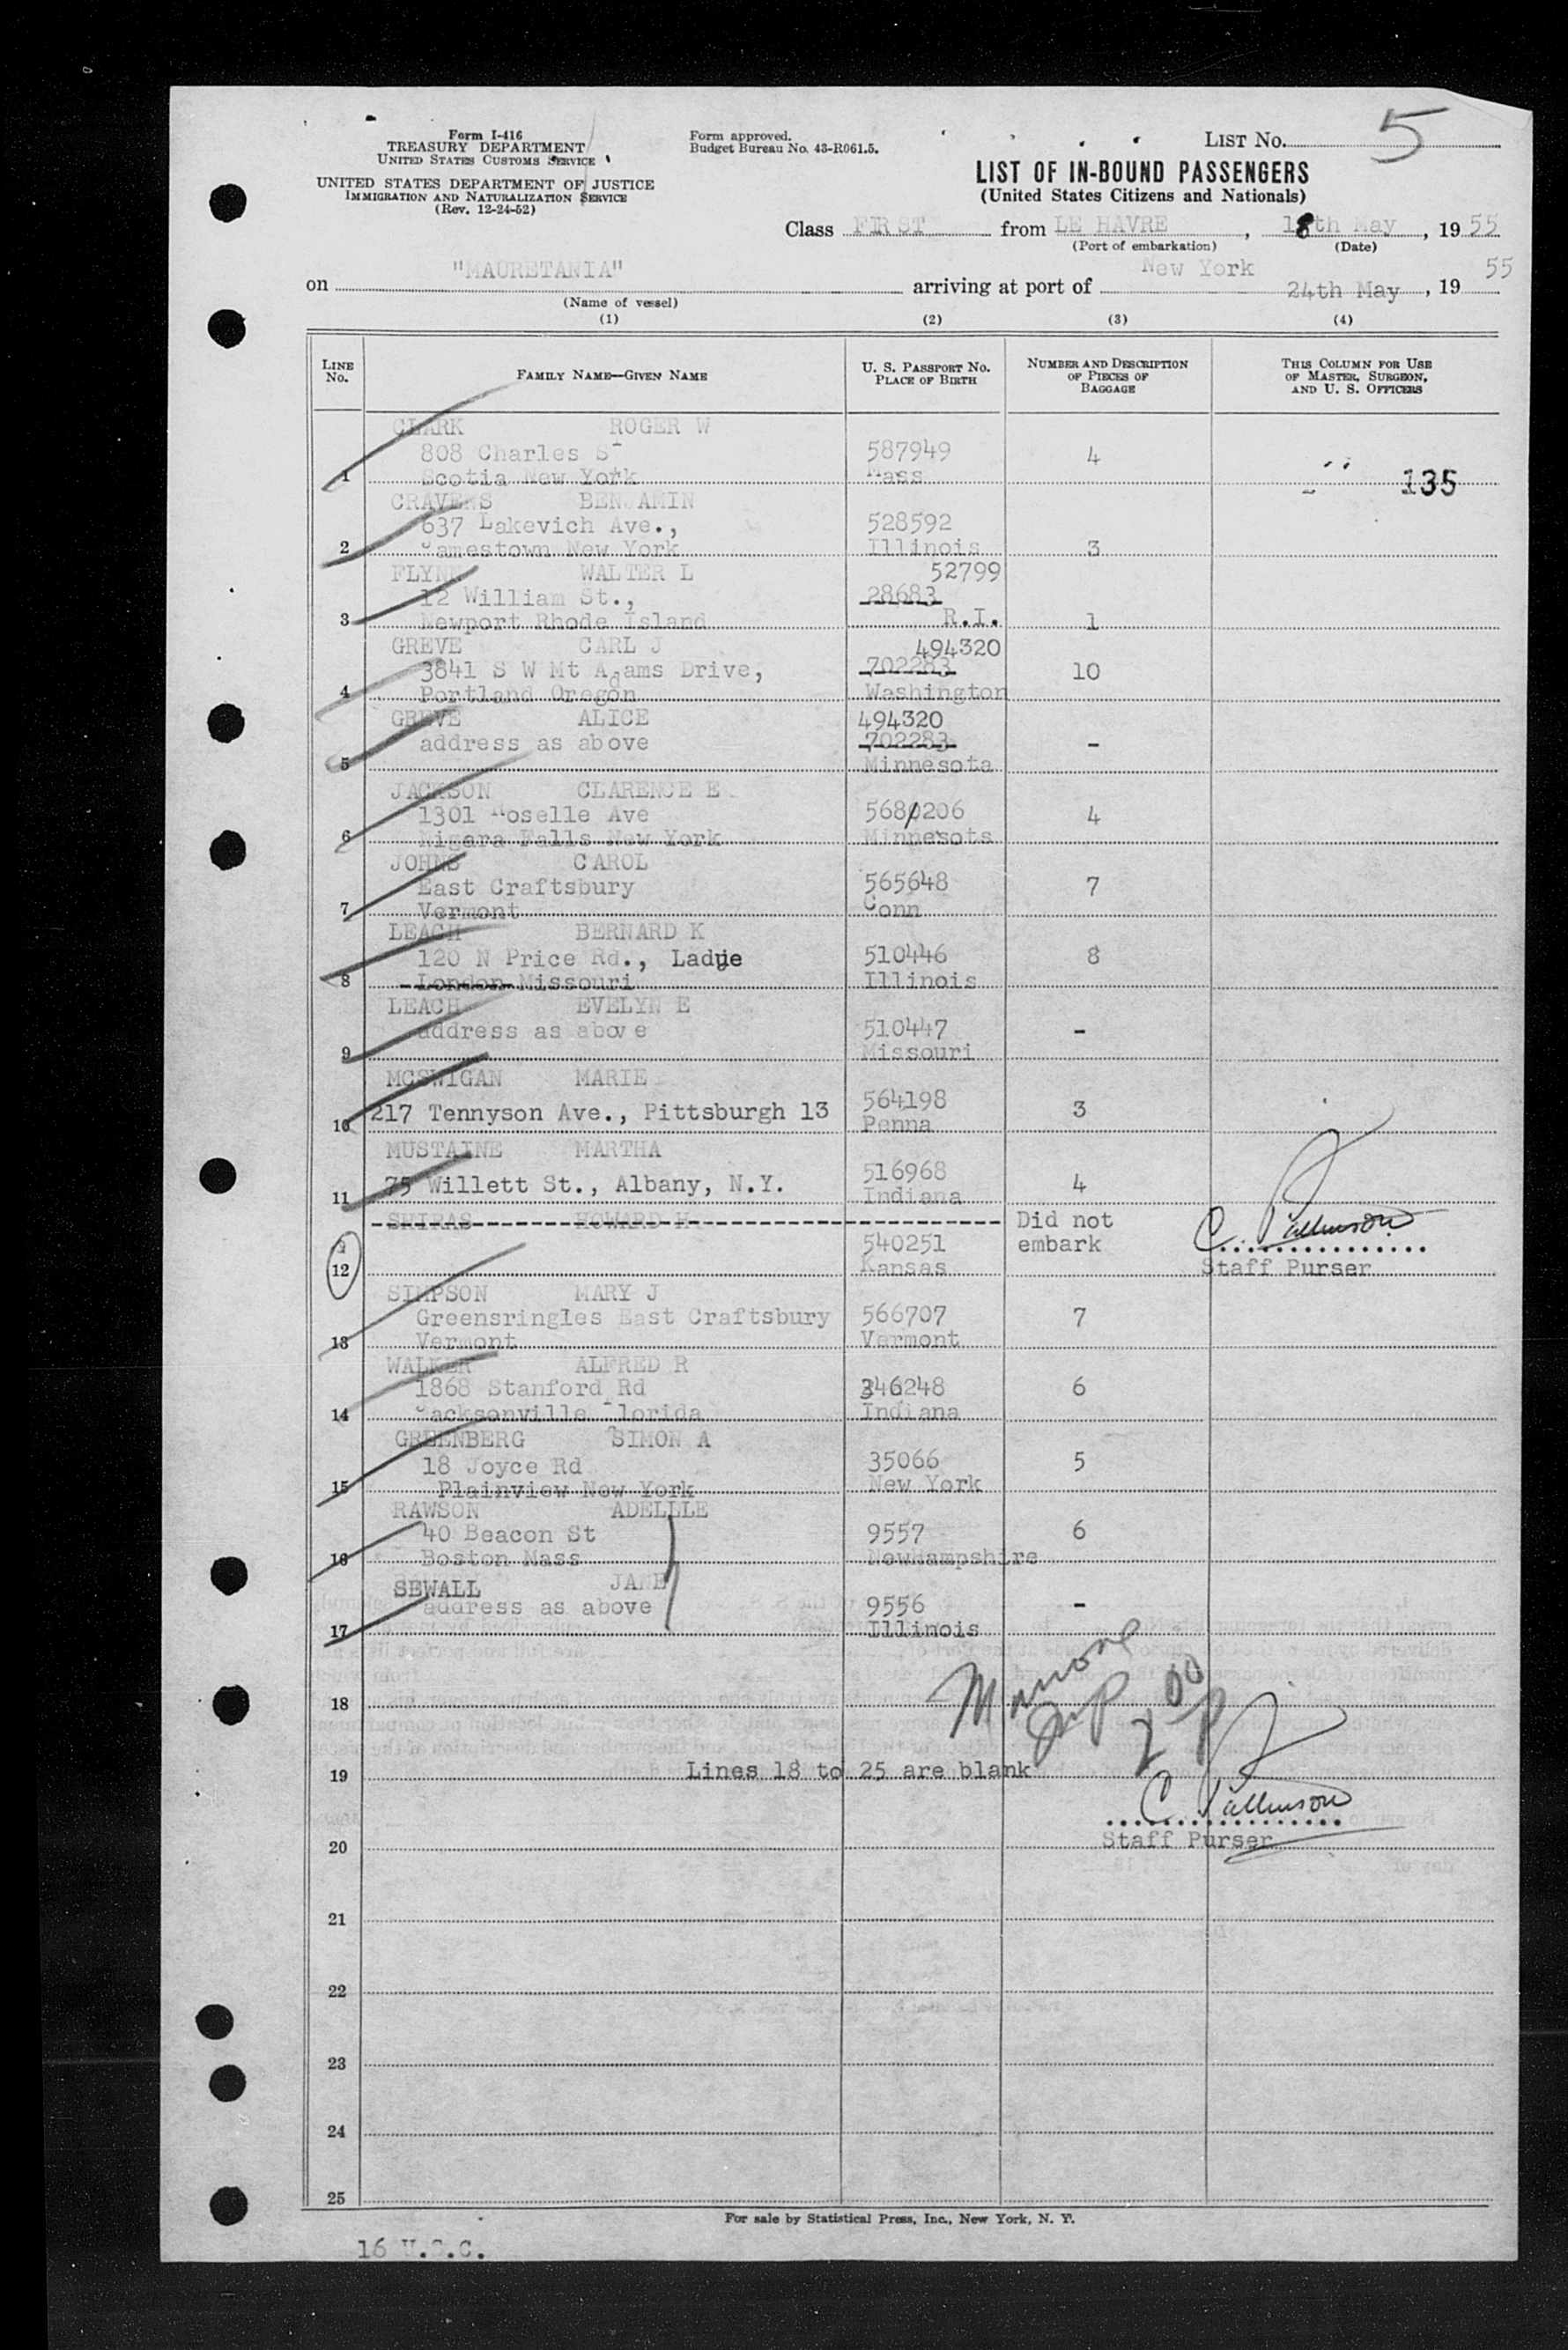 Form I-416
TREASURY DEPARTMENT
UNITED STATES CUSTOMS SERVICE
UNITED STATES DEPARTMENT OF JUSTICE
IMMIGRATION AND NATURALIZATION SERVICE
(Rev. 12-24-52)
Form approved.
Budget Bureau No. 43-R061.5.
LIST No. 5
LIST OF IN-BOUND PASSENGERS
(United States Citizens and Nationals)
Class FIRST from LE HAVRE, 18th May, 1955
(Port of embarkation) (Date)
on "MAURETANIA" arriving at port of New York 24th May, 1955
(Name of vessel)
(1) (2) (3) (4)
LINE No. FAMILY NAME—GIVEN NAME U. S. PASSPORT No. PLACE OF BIRTH NUMBER AND DESCRIPTION OF PIECES OF BAGGAGE THIS COLUMN FOR USE OF MASTER, SURGEON, AND U. S. OFFICERS
CLARK ROGER W
808 Charles St 587949 4
1 Scotia New York Mass 135
CRAVENS BENJAMIN
637 Lakevich Ave., 528592
2 Jamestown New York Illinois 3
FLYNN WALTER L 52799
12 William St., 28683
3 Newport Rhode Island R.I. 1
GREVE CARL J 494320
3841 S W Mt Adams Drive, 702283 10
4 Portland Oregon Washington
GREVE ALICE 494320
address as above 702283 -
5 Minnesota
JACKSON CLARENCE E
1301 Roselle Ave 5680206 4
6 Nigara Falls New York Minnesots
JOHNS CAROL
East Craftsbury 565648 7
7 Vermont Conn
LEACH BERNARD K
120 N Price Rd., Ladue 510446 8
8 London Missouri Illinois
LEACH EVELYN E
address as above 510447 -
9 Missouri
MCSWIGAN MARIE
217 Tennyson Ave., Pittsburgh 13 564198 3
10 Penna
MUSTAINE MARTHA
75 Willett St., Albany, N.Y. 516968 4
11 Indiana
SHIRAS HOWARD H Did not
540251 embark C. Parkinson
12 Kansas Staff Purser
SIMPSON MARY J
Greensringles East Craftsbury 566707 7
13 Vermont Vermont
WALKER ALFRED R
1868 Stanford Rd 346248 6
14 Jacksonville Florida Indiana
GREENBERG SIMON A
18 Joyce Rd 35066 5
15 Plainview New York New York
RAWSON ADELLLE
40 Beacon St 9557 6
16 Boston Mass Newhampshire
SEWALL JANE
address as above 9556 -
17 Illinois
18
19 Lines 18 to 25 are blank
C. Parkinson
Staff Purser
20
21
22
23
24
25
For sale by Statistical Press, Inc., New York, N. Y.
16 U.S.C.